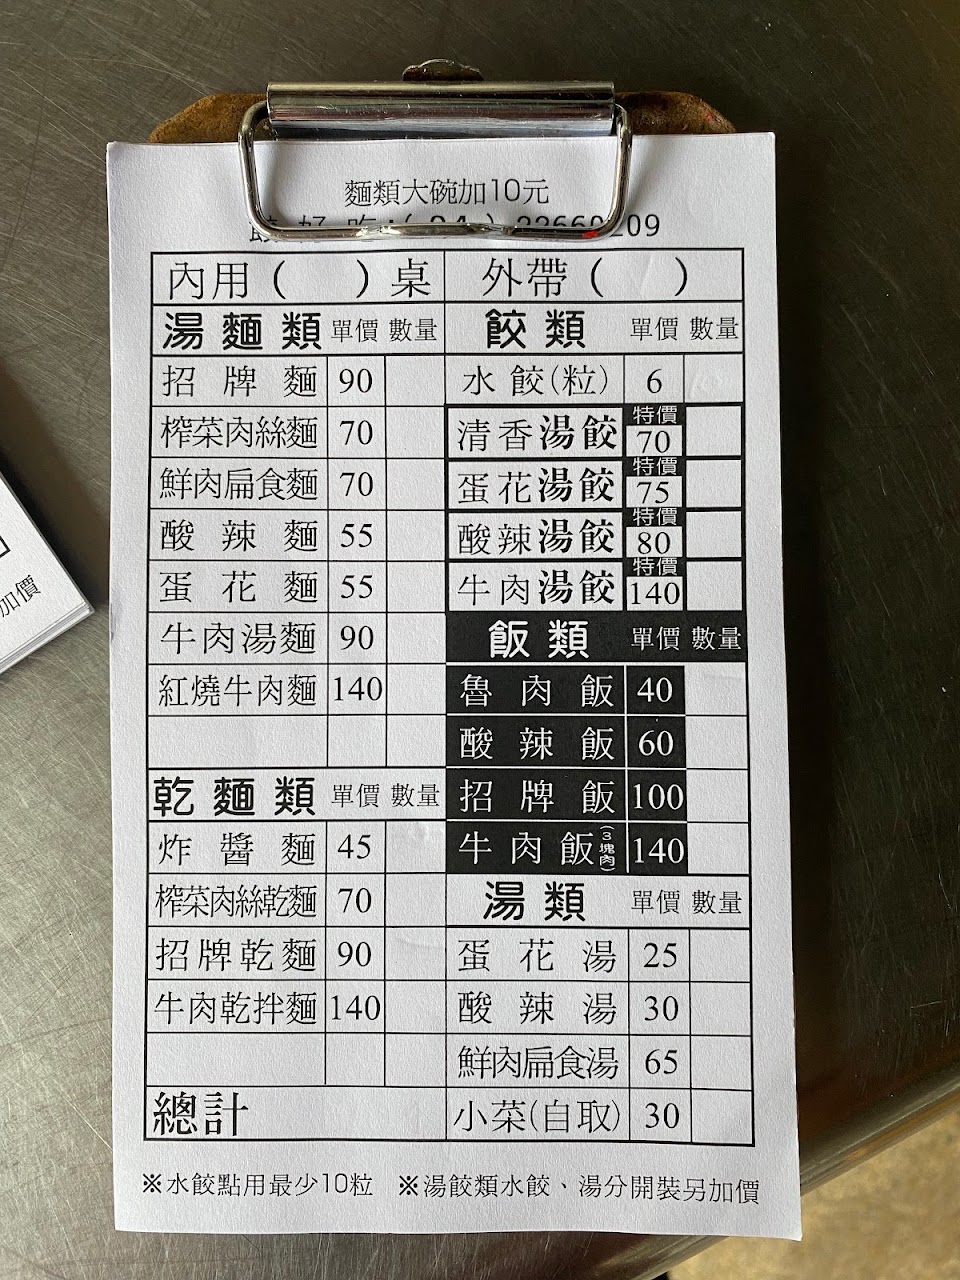 麵類大碗加10元
好 吃:(04)
內用( )桌
湯麵類 單價 數量
招牌麵 90
榨菜肉絲麵 70
鮮肉扁食麵 70
酸辣麵 55
蛋花麵 55
牛肉湯麵 90
紅燒牛肉麵 140
乾麵類 單價 數量
炸醬麵 45
榨菜肉絲乾麵 70
招牌乾麵 90
牛肉乾拌麵 140
總計
外帶( )
餃類 單價 數量
水餃(粒) 6
清香湯餃 特價 70
蛋花湯餃 特價 75
酸辣湯餃 特價 80
牛肉湯餃 特價 140
飯類 單價 數量
魯肉飯 40
酸辣飯 60
招牌飯 100
牛肉飯(3塊肉) 140
湯類 單價 數量
蛋花湯 25
酸辣湯 30
鮮肉扁食湯 65
小菜(自取) 30
※水餃點用最少10粒 ※湯餃類水餃、湯分開裝另加價
加價